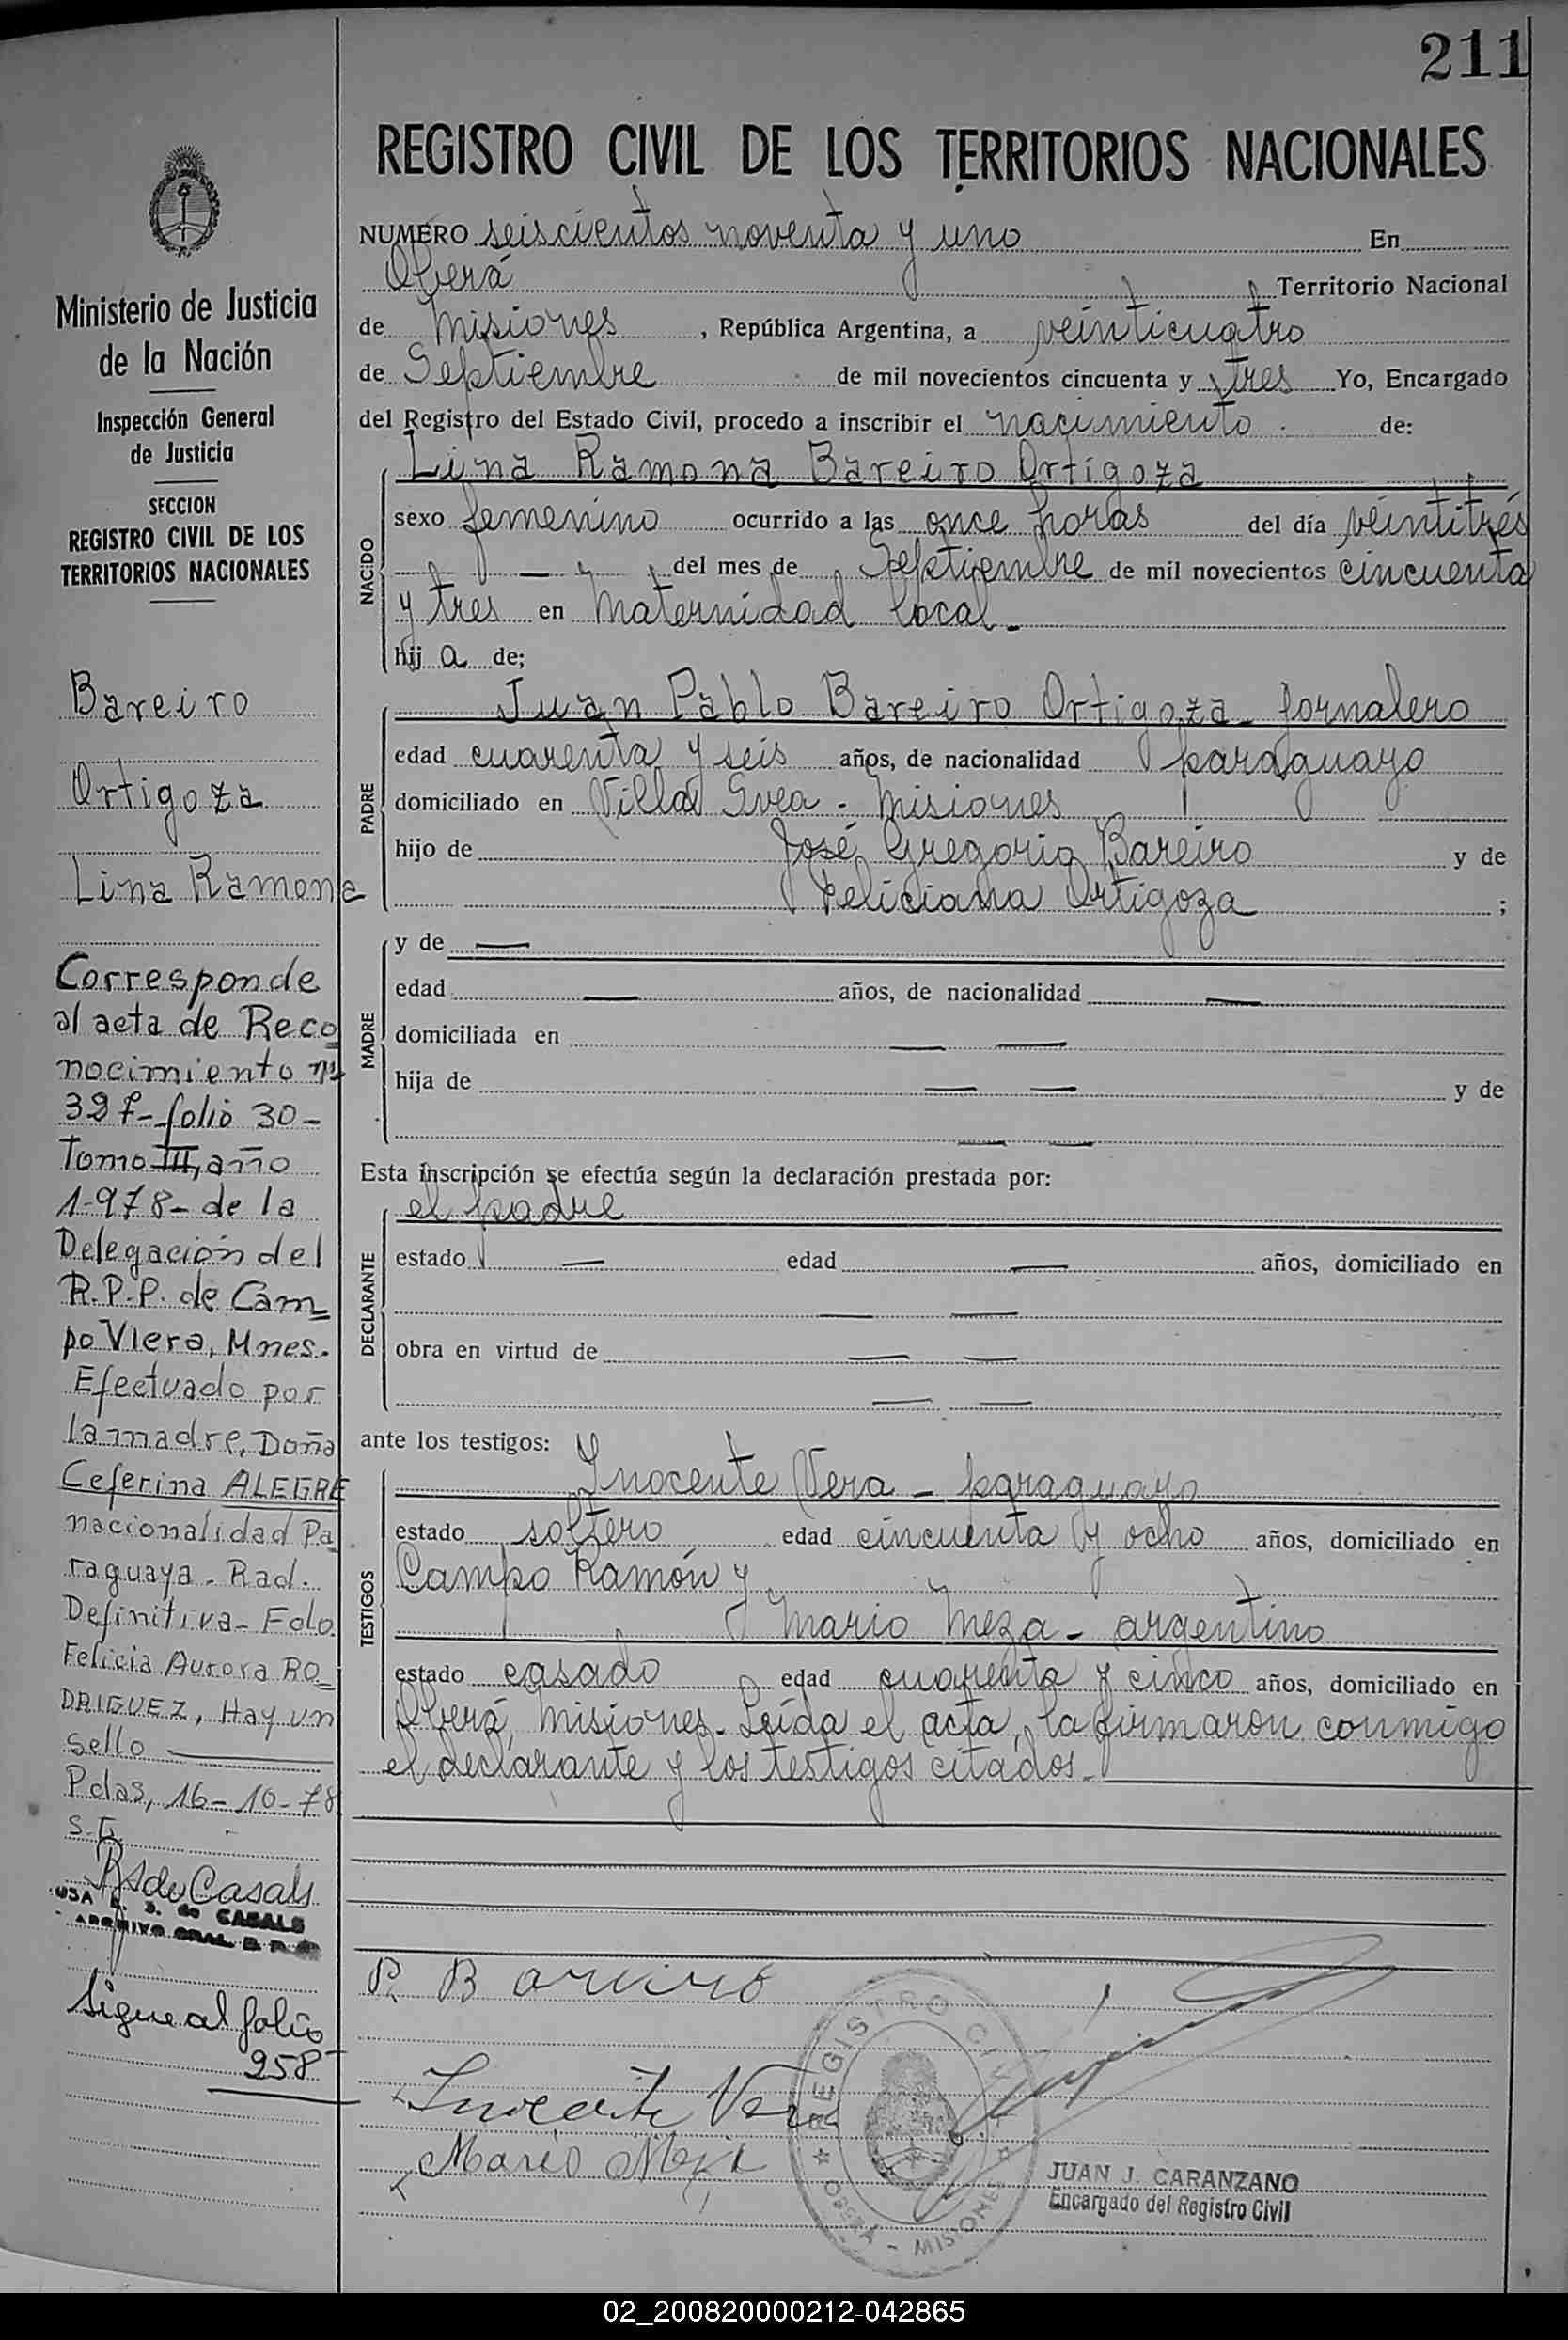 211
REGISTRO CIVIL DE LOS TERRITORIOS NACIONALES
Ministerio de Justicia
de la Nación
Inspección General
de Justicia
SECCION
REGISTRO CIVIL DE LOS
TERRITORIOS NACIONALES
Bareiro
Ortigoza
Lina Ramona
Corresponde
al acta de Reco
nocimiento nº
397-folio 30-
Tomo III, año
1978- de la
Delegación del
R.P.P. de Cam
po Viera, Mnes.
Efectuado por
la madre, Doña
Ceferina ALEGRE
nacionalidad Pa
raguaya. Rad.
Definitiva- Fdo.
Felicia Aurora RO
DRIGUEZ, Hay un
sello
Pdas, 16-10-78
de Casals
S. de CASALS
ARCHIVO GRAL.
Sigue al folio
258
NUMERO seiscientos noventa y uno En
Oberá Territorio Nacional
de Misiones, República Argentina, a veinticuatro
de Septiembre de mil novecientos cincuenta y tres Yo, Encargado
del Registro del Estado Civil, procedo a inscribir el nacimiento de:
NACIDO
Lina Ramona Bareiro Ortigoza
sexo femenino ocurrido a las once horas del día veintitrés
del mes de Septiembre de mil novecientos cincuenta
y tres en Maternidad local.
hij a de;
PADRE
Juan Pablo Bareiro Ortigoza - jornalero
edad cuarenta y seis años, de nacionalidad paraguayo
domiciliado en Villa Svea - Misiones
hijo de José Gregorio Bareiro y de
Feliciana Ortigoza ;
MADRE
y de —
edad — años, de nacionalidad —
domiciliada en — —
hija de — — y de
— —
Esta inscripción se efectúa según la declaración prestada por:
DECLARANTE
el padre
estado — edad — años, domiciliado en
— —
obra en virtud de — —
— —
ante los testigos:
TESTIGOS
Inocente Vera - paraguayo
estado soltero edad cincuenta y ocho años, domiciliado en
Campo Ramón y
Mario Meza - argentino
estado casado edad cuarenta y cinco años, domiciliado en
Oberá, Misiones. Leída el acta, la firmaron conmigo
el declarante y los testigos citados.
P. Bareiro
Inocente Vera
Mario Meza
REGISTRO CIVIL
MISIONES
JUAN J. CARANZANO
Encargado del Registro Civil
02_200820000212-042865